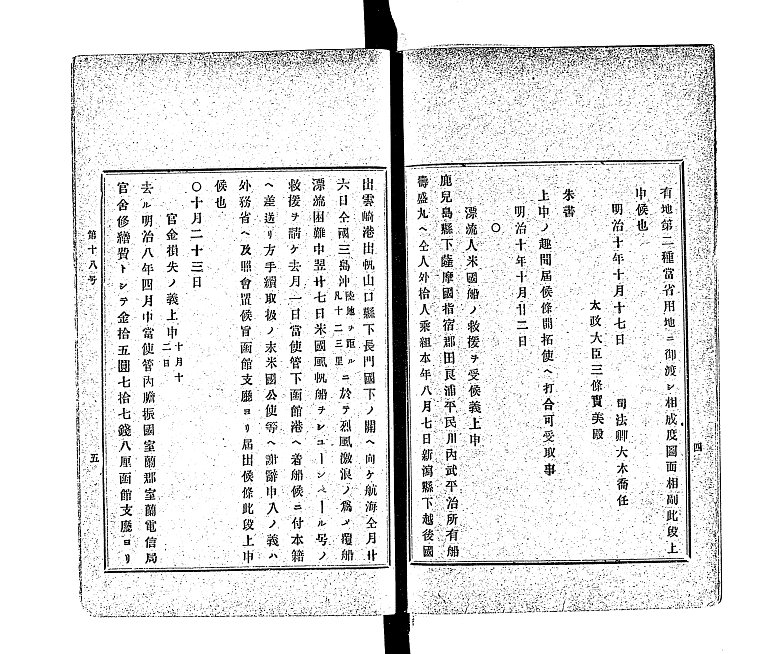 有地第二種當省用地ニ御渡シ相成度圖面相副此段上
申候也
明治十年十月十七日　司法卿大木喬任
太政大臣三條實美殿
朱書
上申ノ趣聞届候條開拓使ヘ打合可受取事
明治十年十月廿二日
〇
漂流人米國船ノ救援ヲ受候義上申
鹿兒島縣下薩摩國指宿郡田良浦平民川內武平治所有船
壽盛丸ヘ仝人外拾人乘組本年八月七日新瀉縣下越後國
四
出雲崎港出帆山口縣下長門國下ノ關ヘ向ケ航海仝月廿
六日仝國三島沖陸地ヲ距ル凡十二三里ニ於テ烈風激浪ノ爲メ覆船
漂流困難中翌廿七日米國風帆船チレューンベール号ノ
救援ヲ請ケ去月一日當使管下函館港ヘ着船候ニ付本籍
ヘ差送リ方手續取扱ノ末米國公使等ヘ謝辭申入ノ義ハ
外務省ヘ及照會置候旨函館支廳ヨリ届出候條此段上申
候也
〇十月二十三日
官金損失ノ義上申十月十二日
去ル明治八年四月中當使管內膽振國室蘭郡室蘭電信局
官舍修繕費トシテ金拾五圓七拾七錢八厘函館支廳ヨリ
第十八号
五